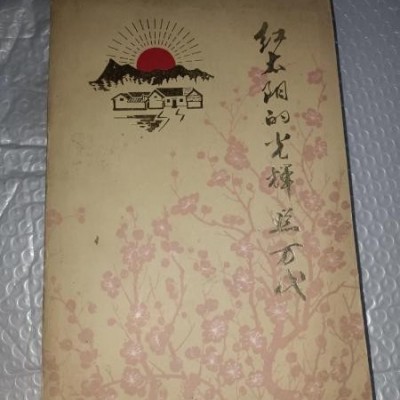 红太阳的光辉照万代